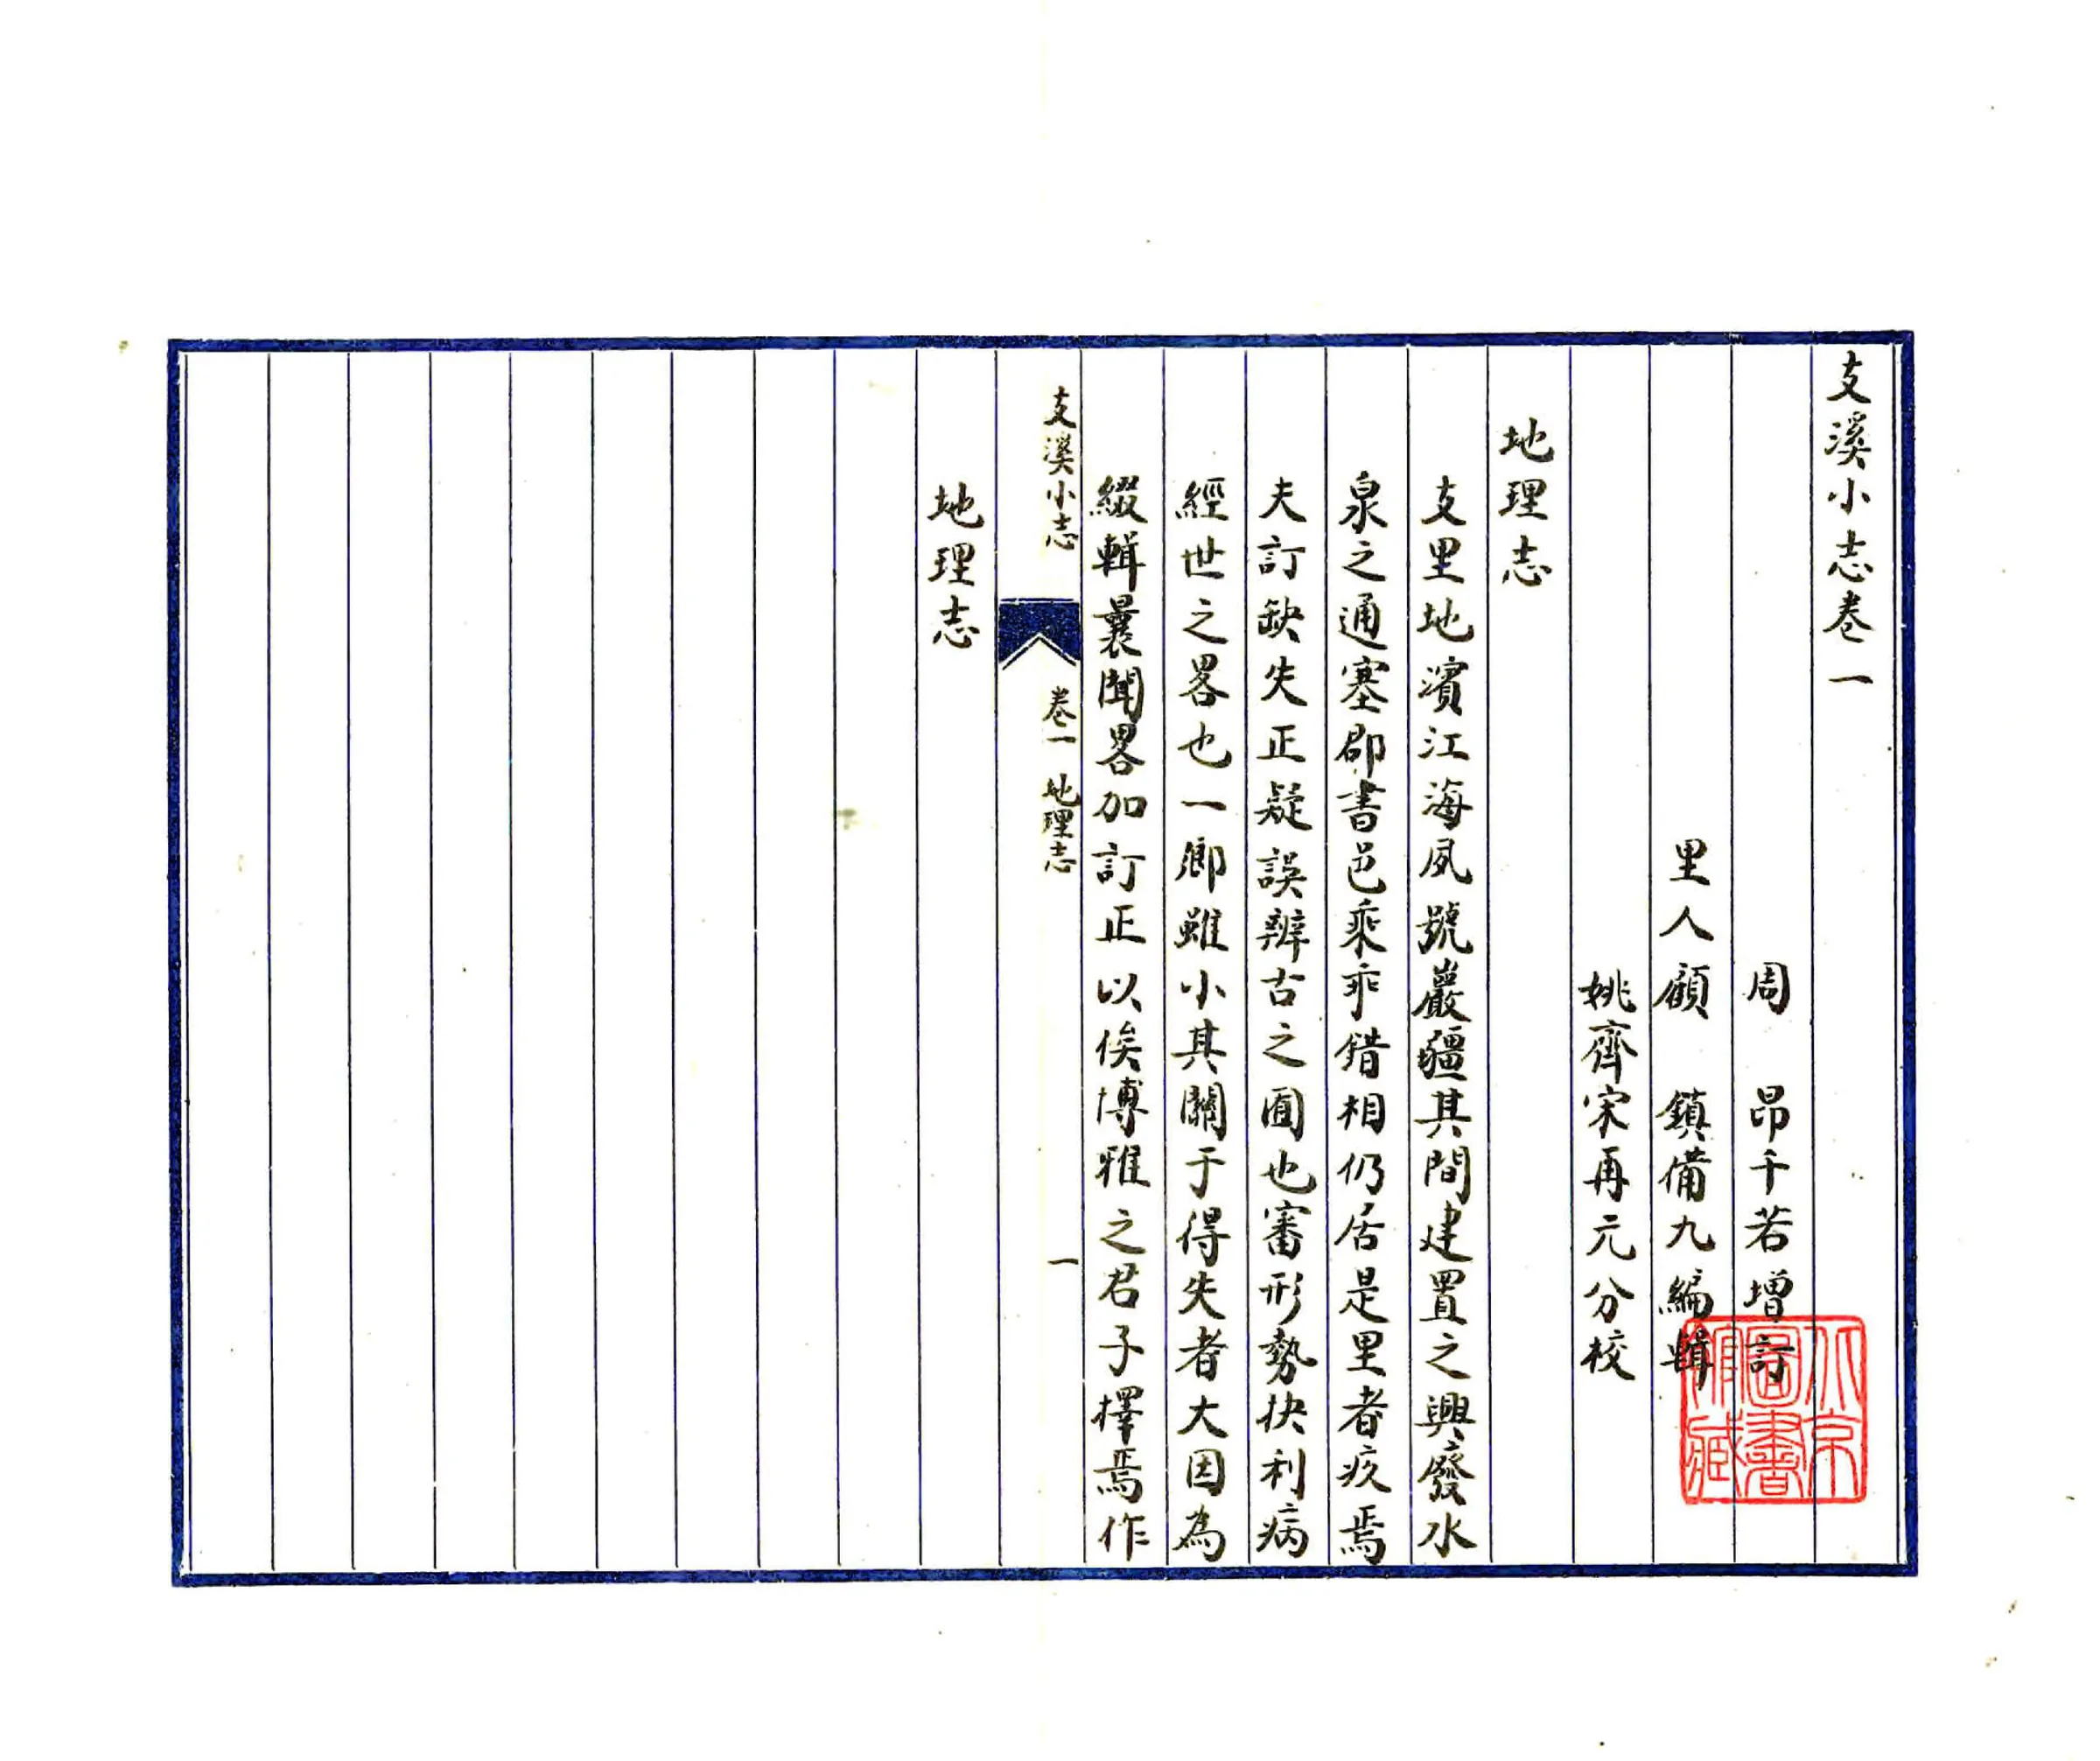 支溪小志卷一
周　昂千若增訂
里人顧　鎮備九編輯
姚齊宋再元分校
地理志
支里地濱江海夙號巖疆其間建置之興廢水
泉之通塞郡書邑乘乖錯相仍居是里者疚焉
夫訂缺失正疑誤辨古之圃也審形勢抉利病
經世之畧也一鄉雖小其關于得失者大因為
綴輯曩聞畧加訂正以俟博雅之君子擇焉作
支溪小志　卷一　地理志　一
地理志
北京圖書館藏